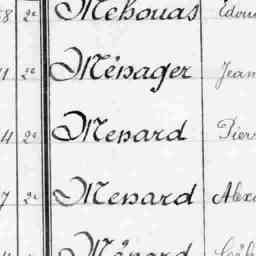 8 2e Mehouas Édou
1 2e Ménager Jean
4 2e Menard Pier
7 2e Menard Alex
Ménard